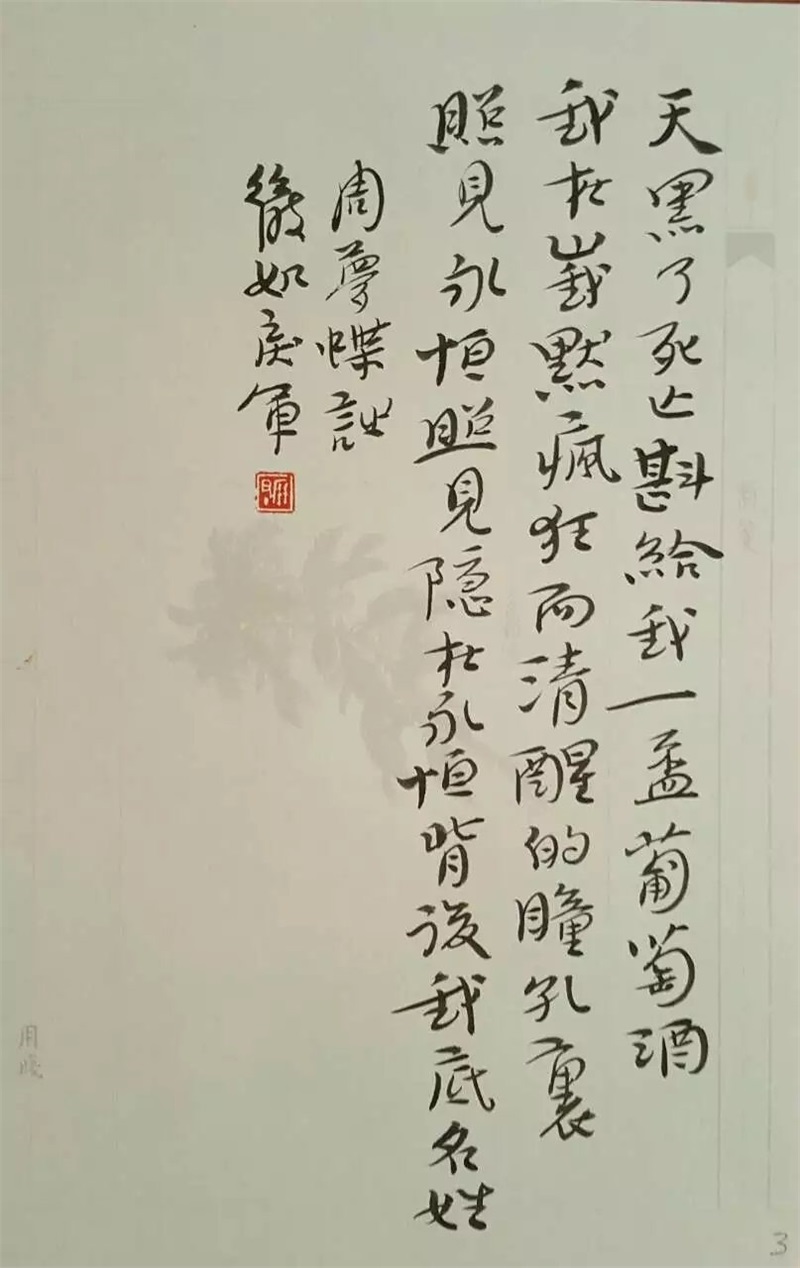 天黑了死亡斟給我一盃葡萄酒
我在峩默瘋狂而清醒的瞳孔裏
照見永恒照見隐在永恒背後我底名姓
周夢蝶詩
如軍
用箋
3